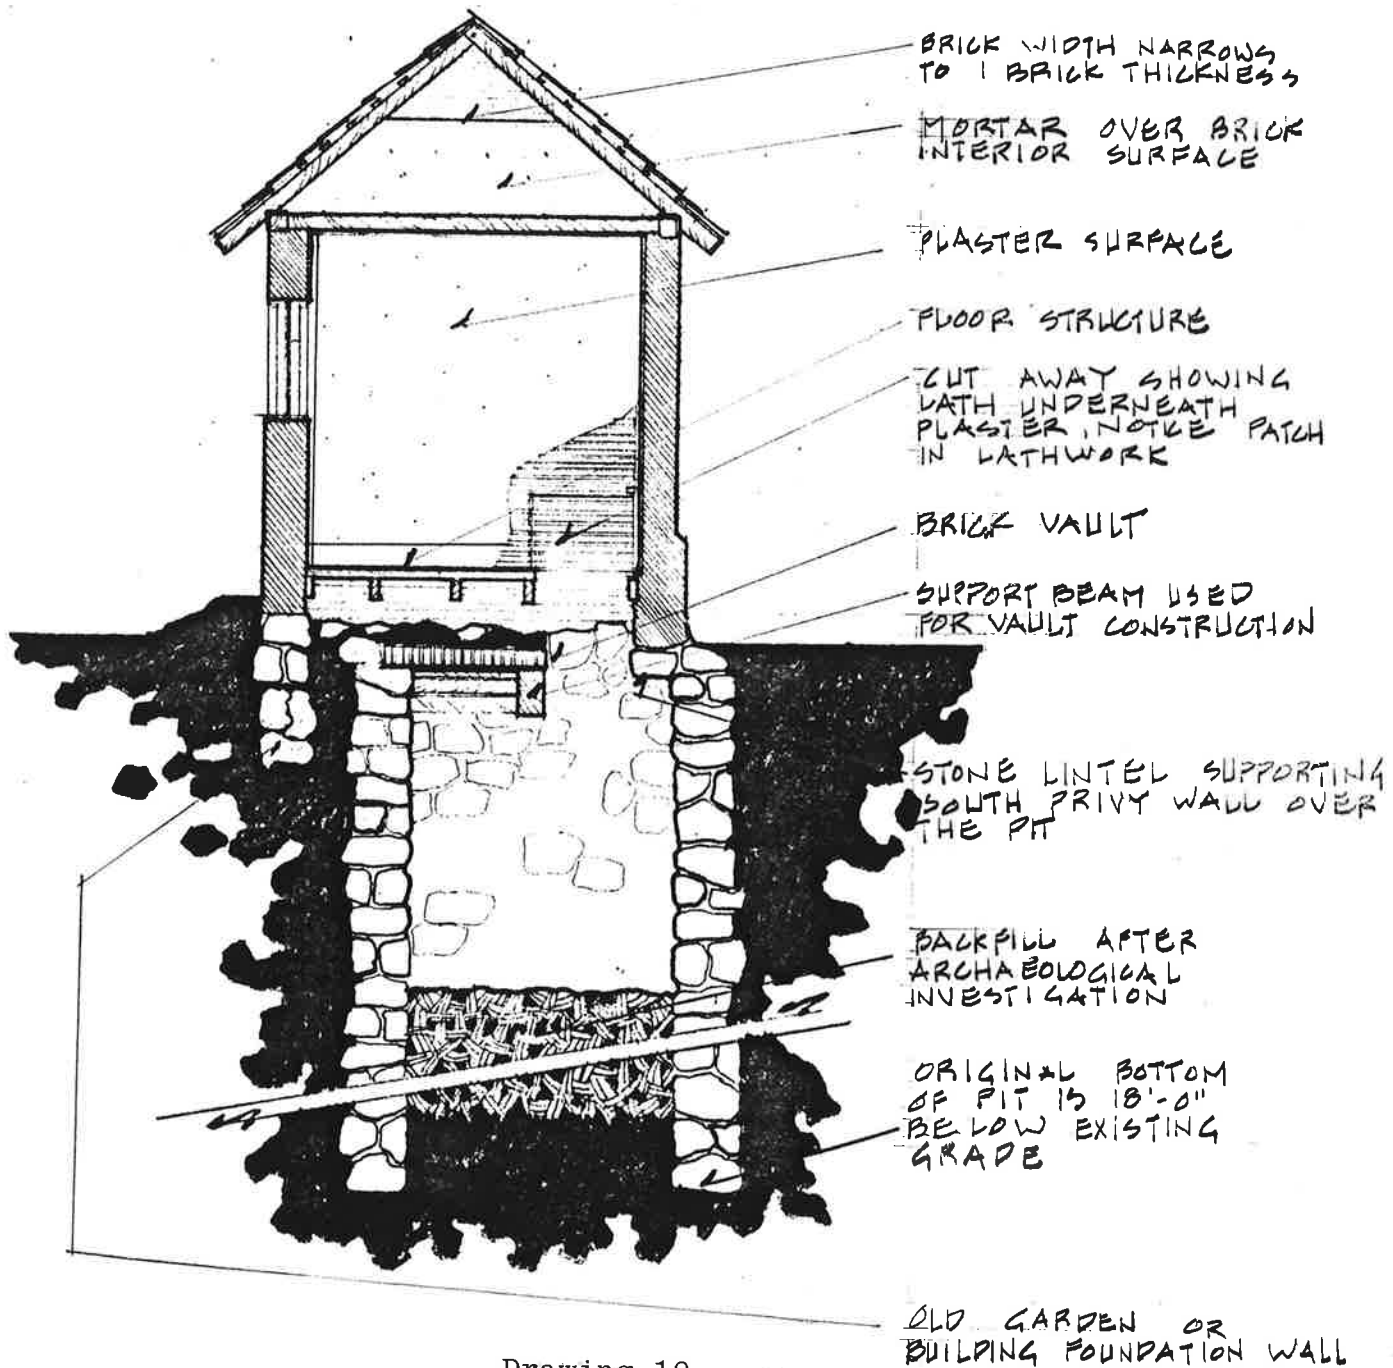 BRICK WIDTH NARROWS
TO 1 BRICK THICKNESS
MORTAR OVER BRICK
INTERIOR SURFACE
PLASTER SURFACE
FLOOR STRUCTURE
CUT AWAY SHOWING
LATH UNDERNEATH
PLASTER, NOTICE PATCH
IN LATHWORK
BRICK VAULT
SUPPORT BEAM USED
FOR VAULT CONSTRUCTION
STONE LINTEL SUPPORTING
SOUTH PRIVY WALL OVER
THE PIT
BACKFILL AFTER
ARCHAEOLOGICAL
INVESTIGATION
ORIGINAL BOTTOM
OF PIT IS 18'-0"
BELOW EXISTING
GRADE
OLD GARDEN OR
BUILDING FOUNDATION WALL
Drawing 10